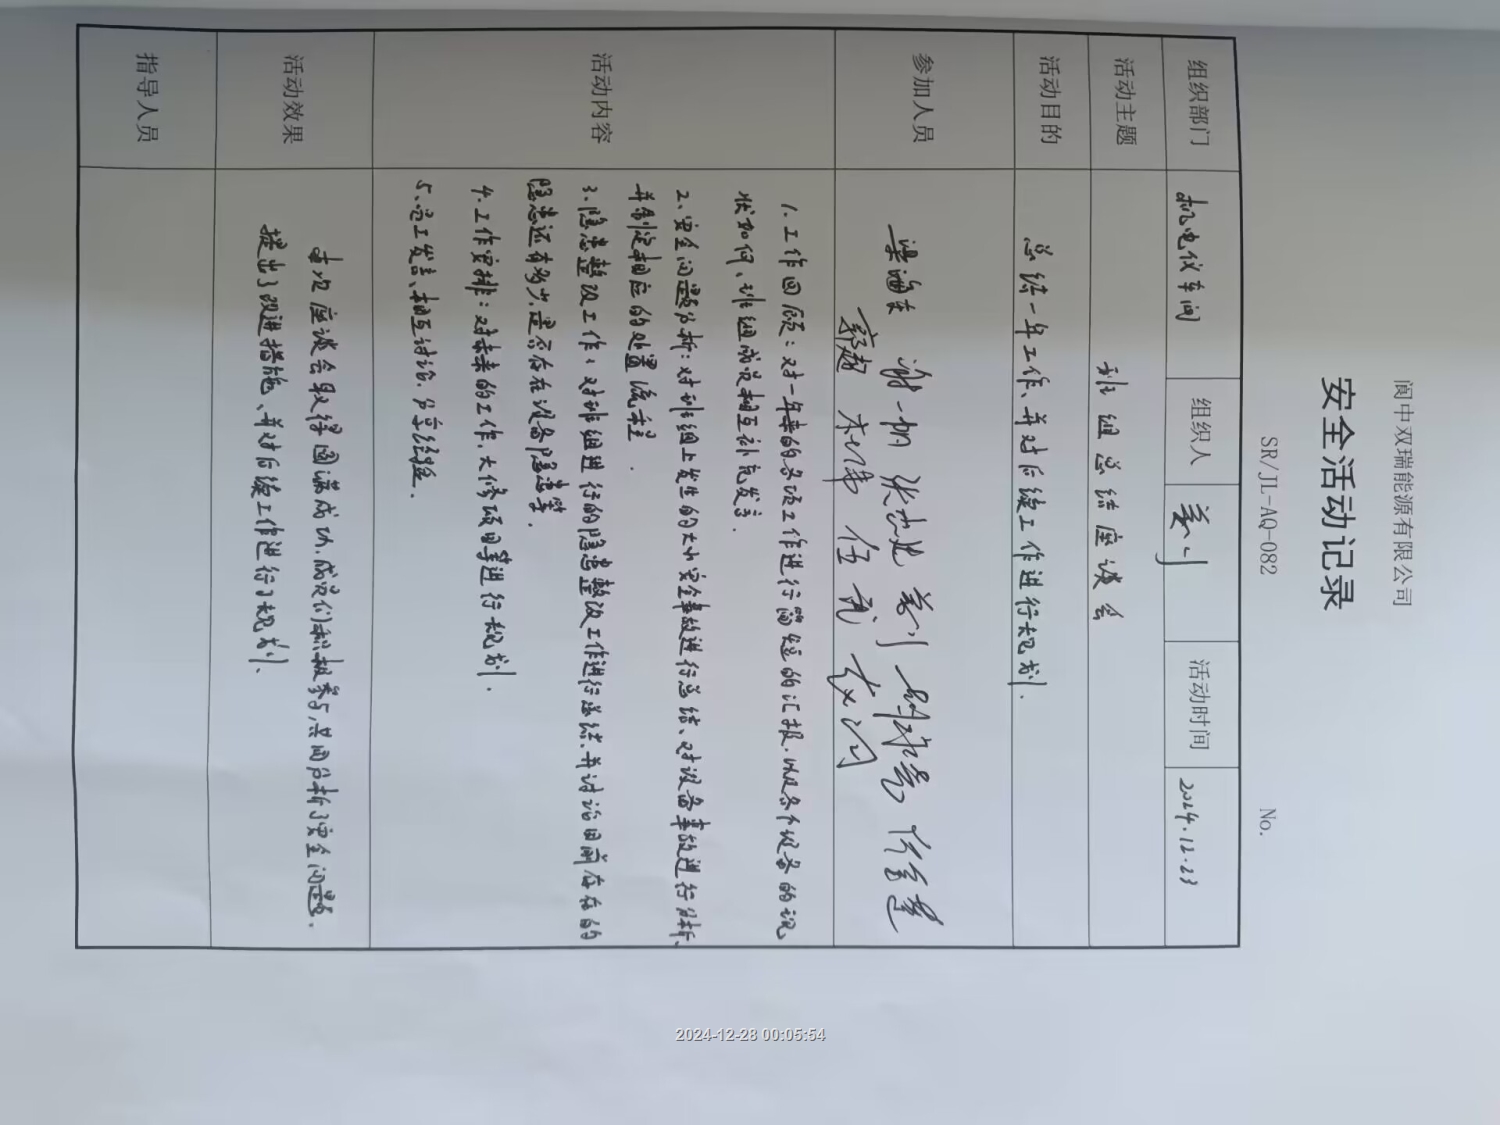 阆中双瑞能源有限公司
安全活动记录
SR/JL-AQ-082 No.
组织部门 机电仪车间 组织人 活动时间 2024.12.23
活动主题 班组总结座谈会
活动目的 总结一年工作、并对后续工作进行规划.
参加人员 梁
伍
活动内容 1.工作回顾:对一年来的各项工作进行简短的汇报.以及各个设备的现
状如何、班组成员相互补充发言.
2、安全问题分析:对班组上发生的大小安全事故进行总结、对设备事故进行分析、
并制定相应的处置流程.
3.隐患整改工作:对班组进行的隐患整改工作进行总结.并讨论目前存在的
隐患还有多少.是否存在设备隐患等.
4.工作安排:对未来的工作.大修项目等进行规划.
5、员工发言、相互讨论.分享经验.
活动效果 本次座谈会取得圆满成功.成员们积极参与.共同分析了安全问题.
提出了改进措施、并对后续工作进行了规划.
指导人员
2024-12-28 00:05:54